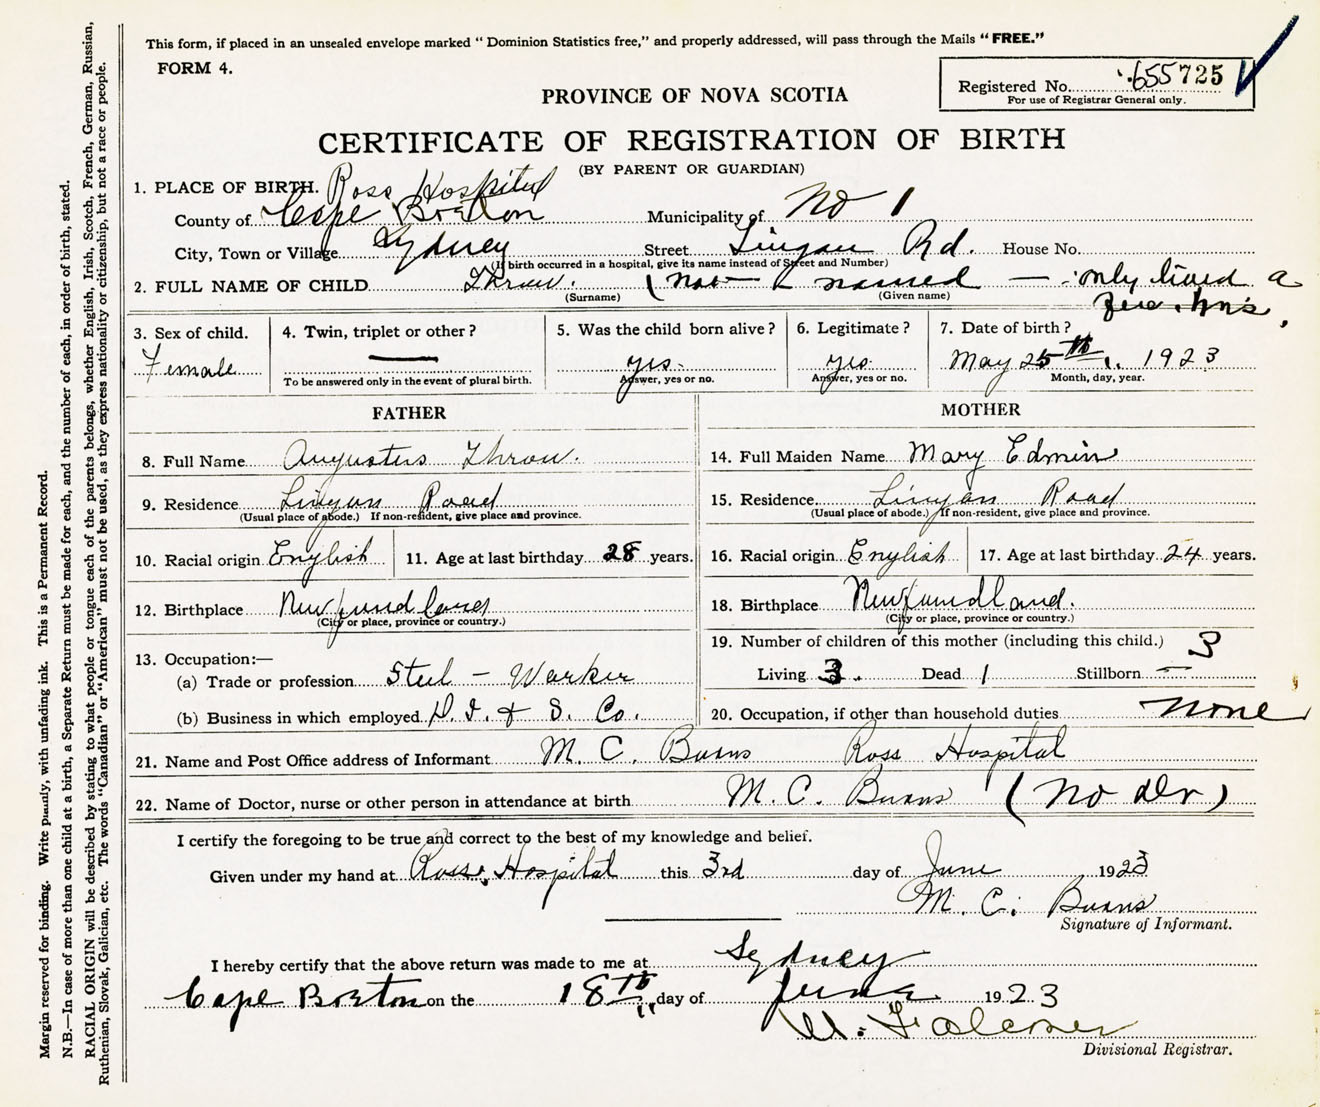 This form, if placed in an unsealed envelope marked " Dominion Statistics free," and properly addressed, will pass through the Mails " FREE."
FORM 4.
Registered No. 655725
For use of Registrar General only.
PROVINCE OF NOVA SCOTIA
CERTIFICATE OF REGISTRATION OF BIRTH
(BY PARENT OR GUARDIAN)
1. PLACE OF BIRTH. Ross Hospital
County of Cape Breton Municipality of No 1
City, Town or Village Sydney Street Lingan Rd. House No.
(If birth occurred in a hospital, give its name instead of Street and Number)
2. FULL NAME OF CHILD Throw. (not named — only lived a
few hrs.
(Surname) (Given name)
3. Sex of child. 4. Twin, triplet or other? 5. Was the child born alive? 6. Legitimate? 7. Date of birth?
Female — yes. yes. May 25th 1923
To be answered only in the event of plural birth. Answer, yes or no. Answer, yes or no. Month, day, year.
FATHER MOTHER
8. Full Name Augustus Throw. 14. Full Maiden Name Mary Edmin
9. Residence Lingan Road 15. Residence Lingan Road
(Usual place of abode.) If non-resident, give place and province. (Usual place of abode.) If non-resident, give place and province.
10. Racial origin English 11. Age at last birthday 28 years. 16. Racial origin English 17. Age at last birthday 24 years.
12. Birthplace Newfundland 18. Birthplace Newfundland.
(City or place, province or country.) (City or place, province or country.)
19. Number of children of this mother (including this child.) 3
13. Occupation:— Living 3. Dead 1 Stillborn —
(a) Trade or profession Steel - Worker
(b) Business in which employed D. I. & S. Co. 20. Occupation, if other than household duties none
21. Name and Post Office address of Informant M. C. Burns Ross Hospital
22. Name of Doctor, nurse or other person in attendance at birth M. C. Burns (No dr)
I certify the foregoing to be true and correct to the best of my knowledge and belief.
Given under my hand at Ross Hospital this 3rd day of June 1923
M. C. Burns
Signature of Informant.
I hereby certify that the above return was made to me at Sydney
Cape Breton on the 18th day of June 1923
Falconer
Divisional Registrar.
Margin reserved for binding. Write plainly, with unfading ink. This is a Permanent Record.
N.B.—In case of more than one child at a birth, a Separate Return must be made for each, and the number of each, in order of birth, stated.
RACIAL ORIGIN will be described by stating to what people or tongue each of the parents belongs, whether English, Irish, Scotch, French, German, Russian,
Ruthenian, Slovak, Galician, etc. The words "Canadian" or "American" must not be used, as they express nationality or citizenship, but not a race or people.